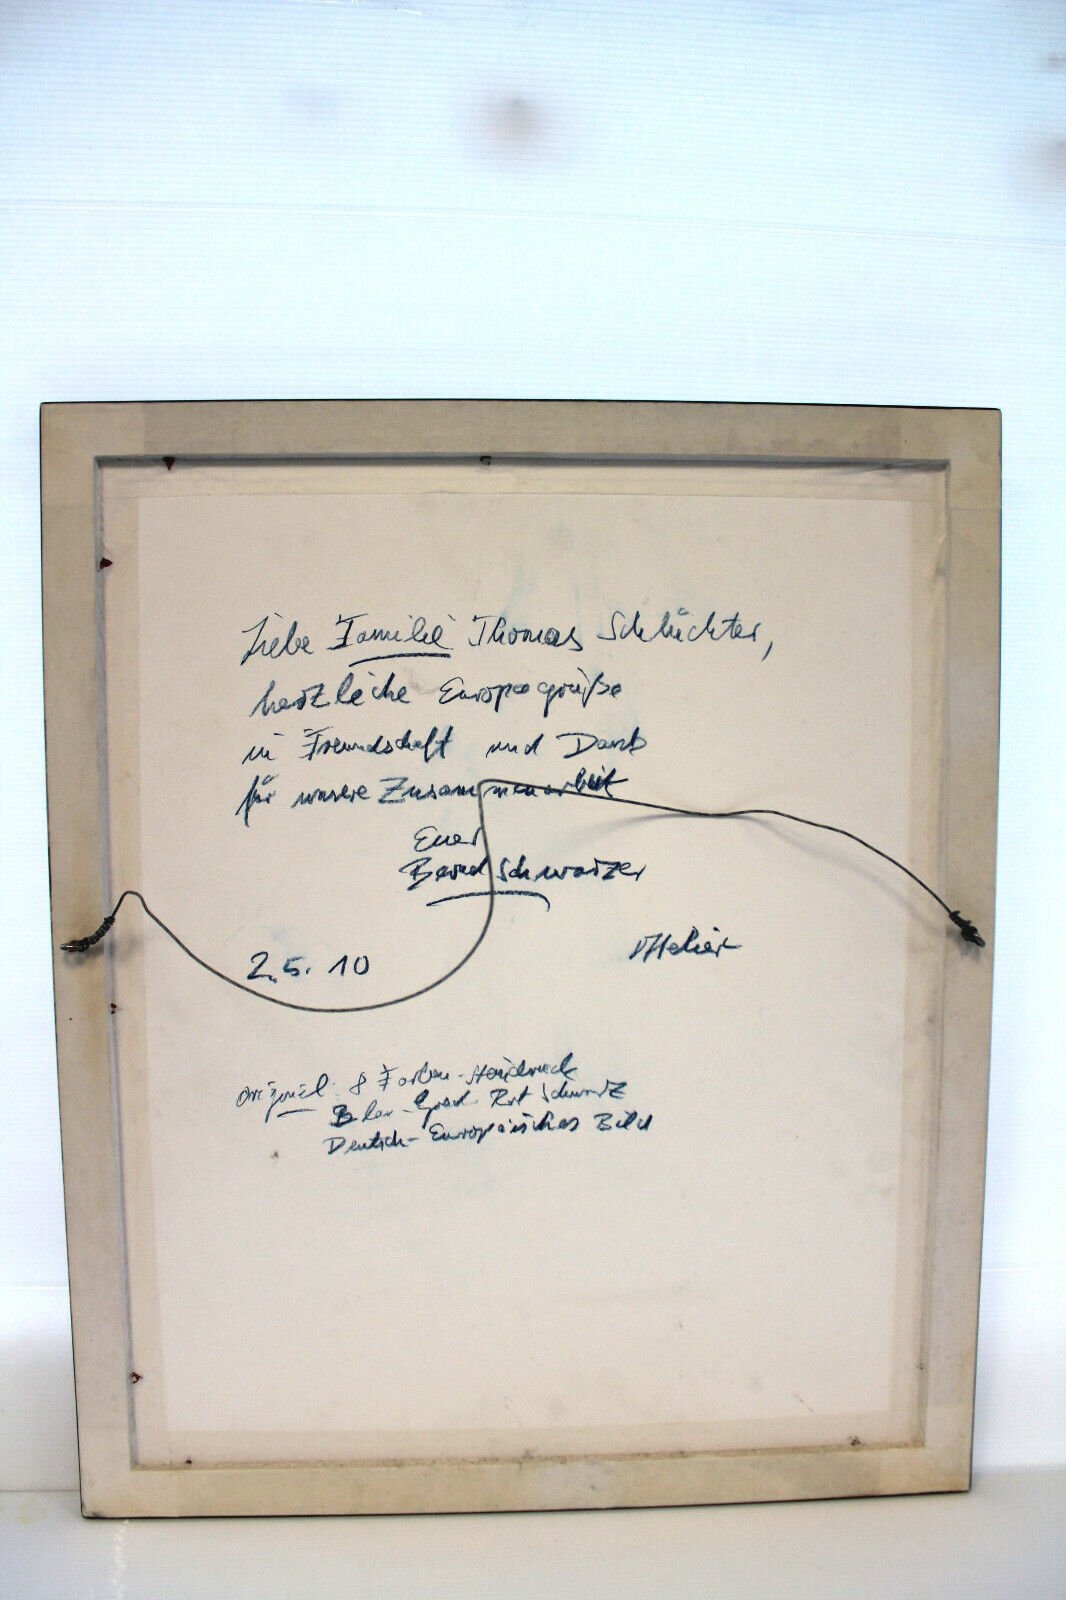 Liebe Familie Thomas Schlüchter,
herzliche Europagrüße
in Freundschaft und Dank
für unsere Zusammenarbeit
Euer
Bernd Schwarzer
2.5.10 Atelier
Original: 8 Farben-Handdruck
Blau-Gold Rot Schwarz
Deutsch-Europäisches Bild